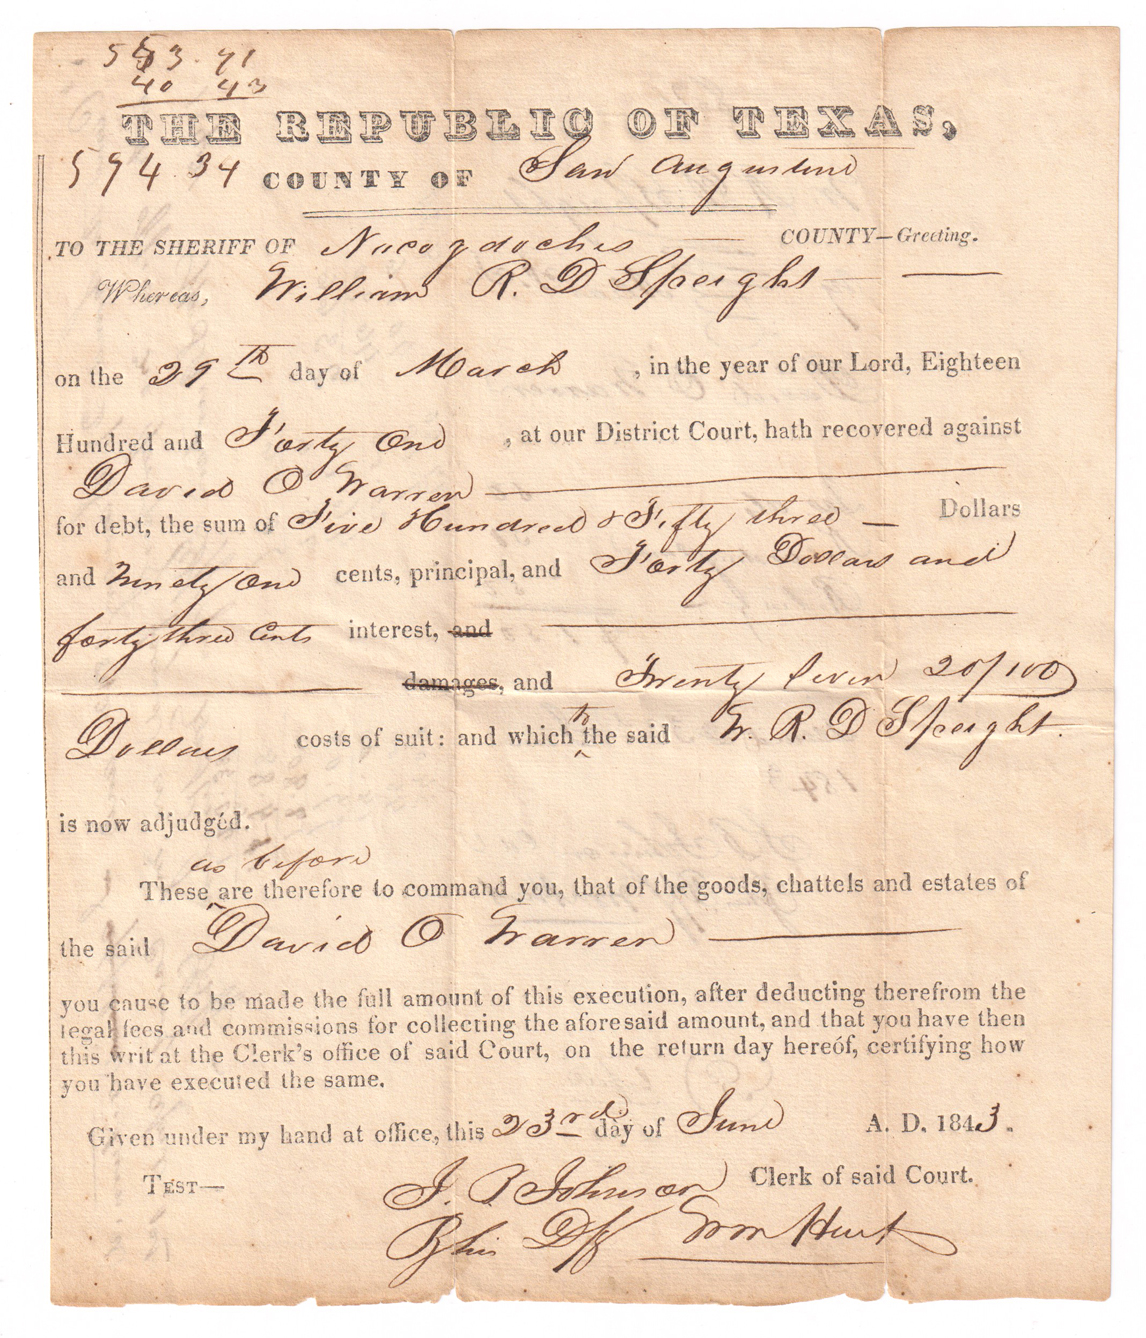 553.91
40 43
THE REPUBLIC OF TEXAS,
594.34 COUNTY OF San Augustine
TO THE SHERIFF OF Nacogdoches COUNTY—Greeting.
Whereas, William R. D Speight
on the 29th day of March , in the year of our Lord, Eighteen
Hundred and Forty One , at our District Court, hath recovered against
David O Warren
for debt, the sum of Five Hundred & Fifty three — Dollars
and Ninety One cents, principal, and Forty Dollars and
forty three Cents interest, and
damages, and Twenty Seven 20/100
Dollars costs of suit: and which the said W. R. D Speight.
is now adjudged.
as before
These are therefore to command you, that of the goods, chattels and estates of
the said David O Warren
you cause to be made the full amount of this execution, after deducting therefrom the
legal fees and commissions for collecting the aforesaid amount, and that you have then
this writ at the Clerk's office of said Court, on the return day hereof, certifying how
you have executed the same.
Given under my hand at office, this 23rd day of June A. D. 1843.
TEST— I. P. Johnson Clerk of said Court.
By his Wm Hurt